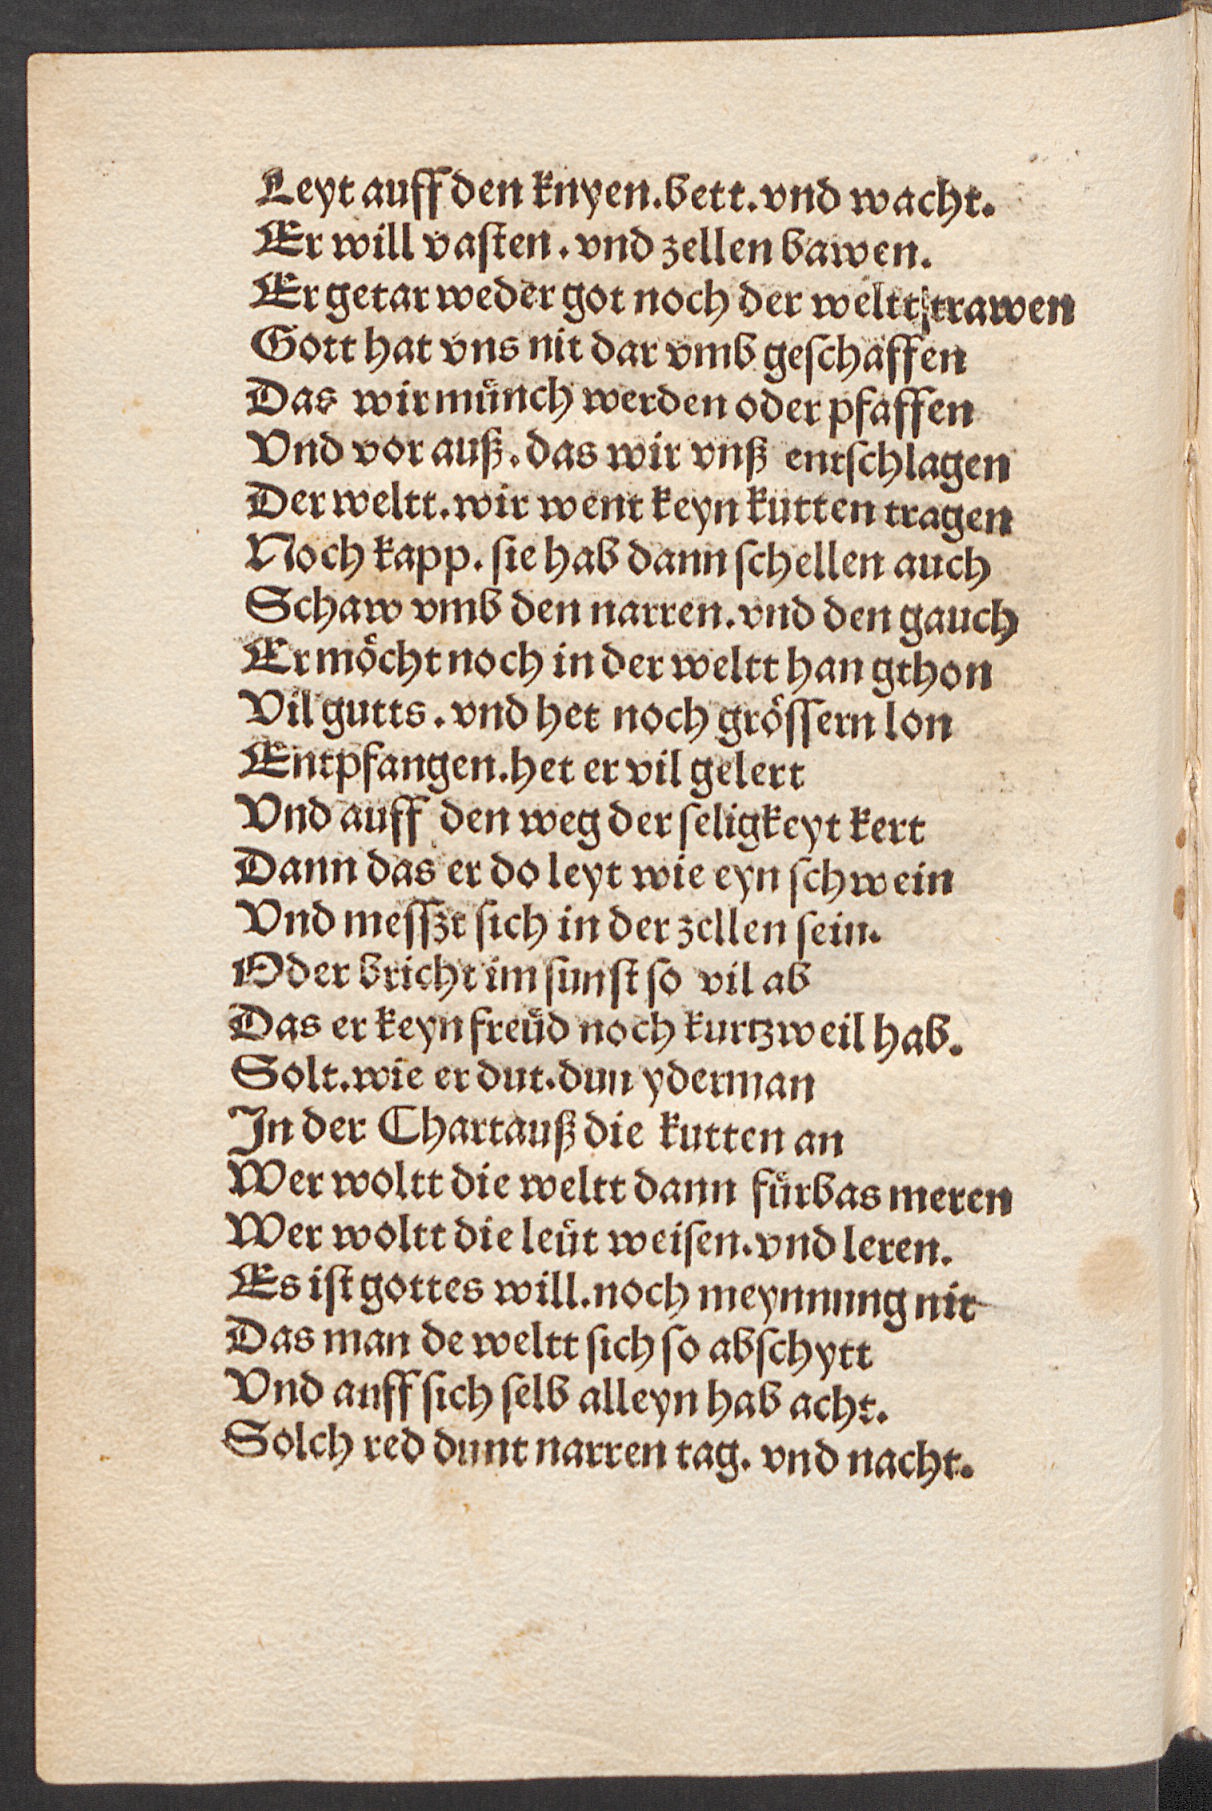 Leyt auff den knyen.bett.vnd wacht.
Er will vaſten.vnd zellen bawen.
Er getar weder got noch der weltt trawen
Gott hat vns nit dar vmb geſchaffen
Das wir muͤnch werden oder pfaffen
Vnd vor auß.das wir vnß entſchlagen
Der weltt.wir went keyn kutten tragen
Noch kapp.ſie hab dann ſchellen auch
Schaw vmb den narren.vnd den gauch
Er moͤcht noch in der weltt han gthon
Vil gutts.vnd het noch groͤſſern lon
Entpfangen.het er vil gelert
Vnd auff den weg der ſeligkeyt kert
Dann das er do leyt wie eyn ſchwein
Vnd meſſzt ſich in der zellen ſein.
Oder bricht im ſunſt ſo vil ab
Das er keyn freuͤd noch kurtzweil hab.
Solt.wie er dut.dun yderman
In der Chartauß die kutten an
Wer woltt die weltt dann fuͤrbas meren
Wer woltt die leuͤt weiſen.vnd leren.
Es iſt gottes will.noch meynnung nit
Das man de weltt ſich ſo abſchytt
Vnd auff ſich ſelb alleyn hab acht.
Solch red dunt narren tag.vnd nacht.